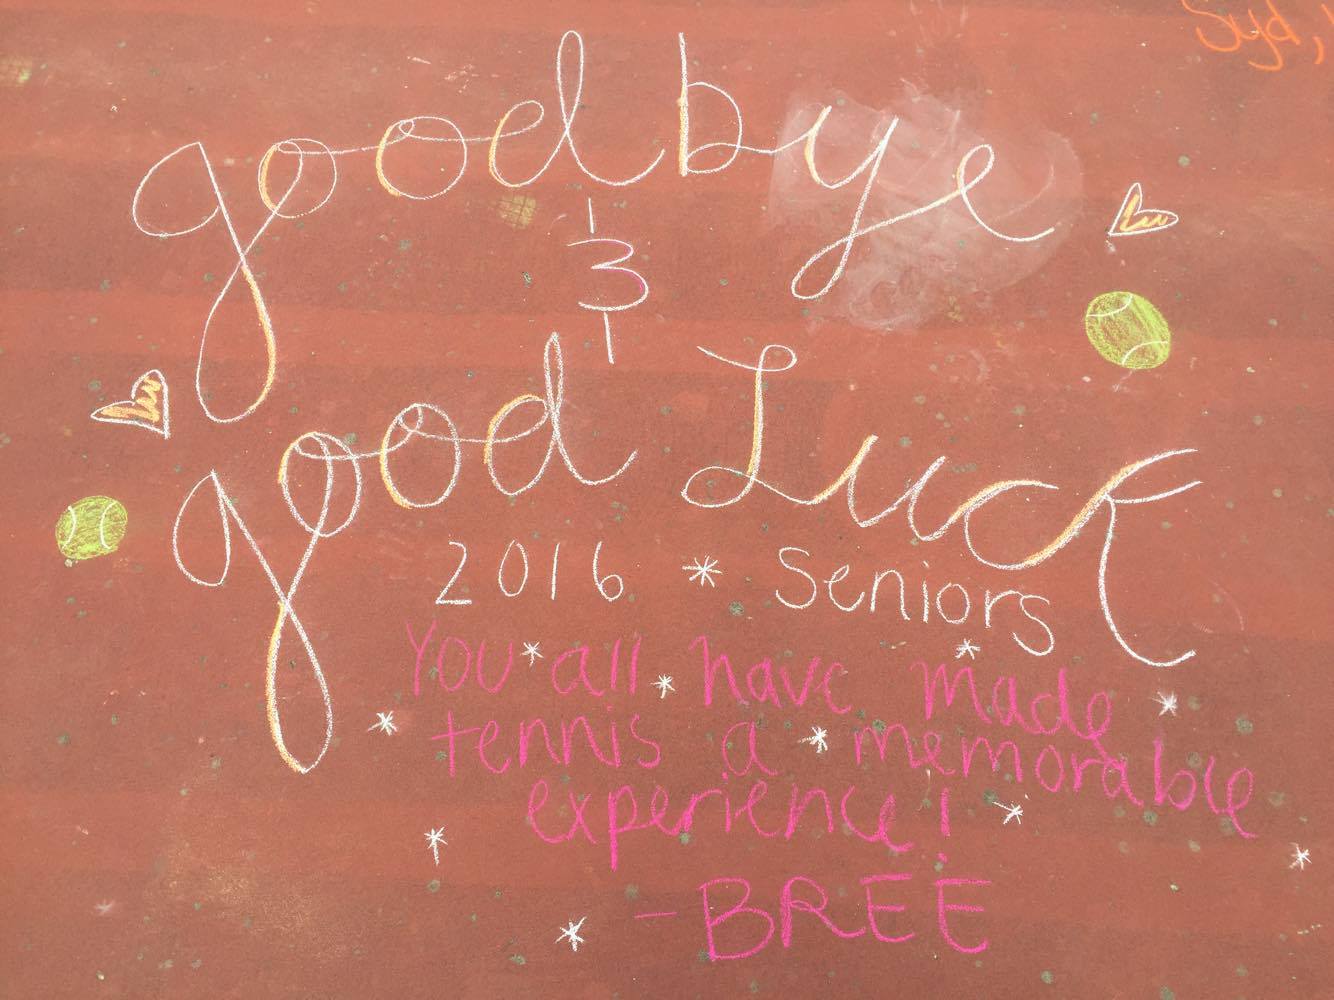 Syd,
goodbye
&
good Luck
2016 * Seniors
You all have made
tennis a memorable
experience!
- BREE